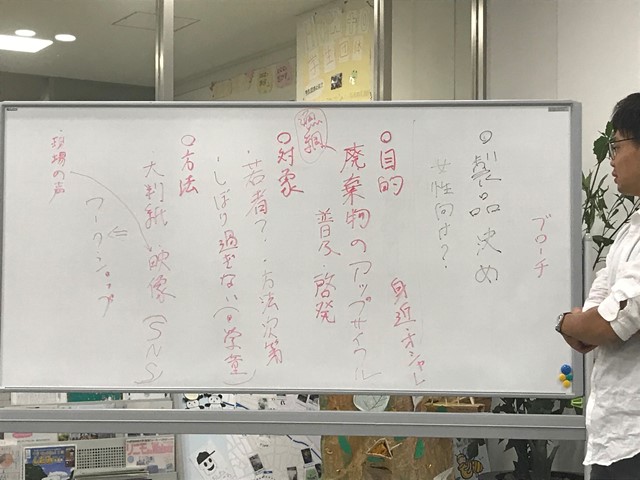 ブローチ
○製品決め
女性向け?
身近・オシャレ
○目的
廃棄物のアップサイクル
普及・啓発
漁網
○対象
・若者?・方法次第
・しばり過ぎない(
○方法
大判紙・映像(SNS)
ワークショップ
・現場の声